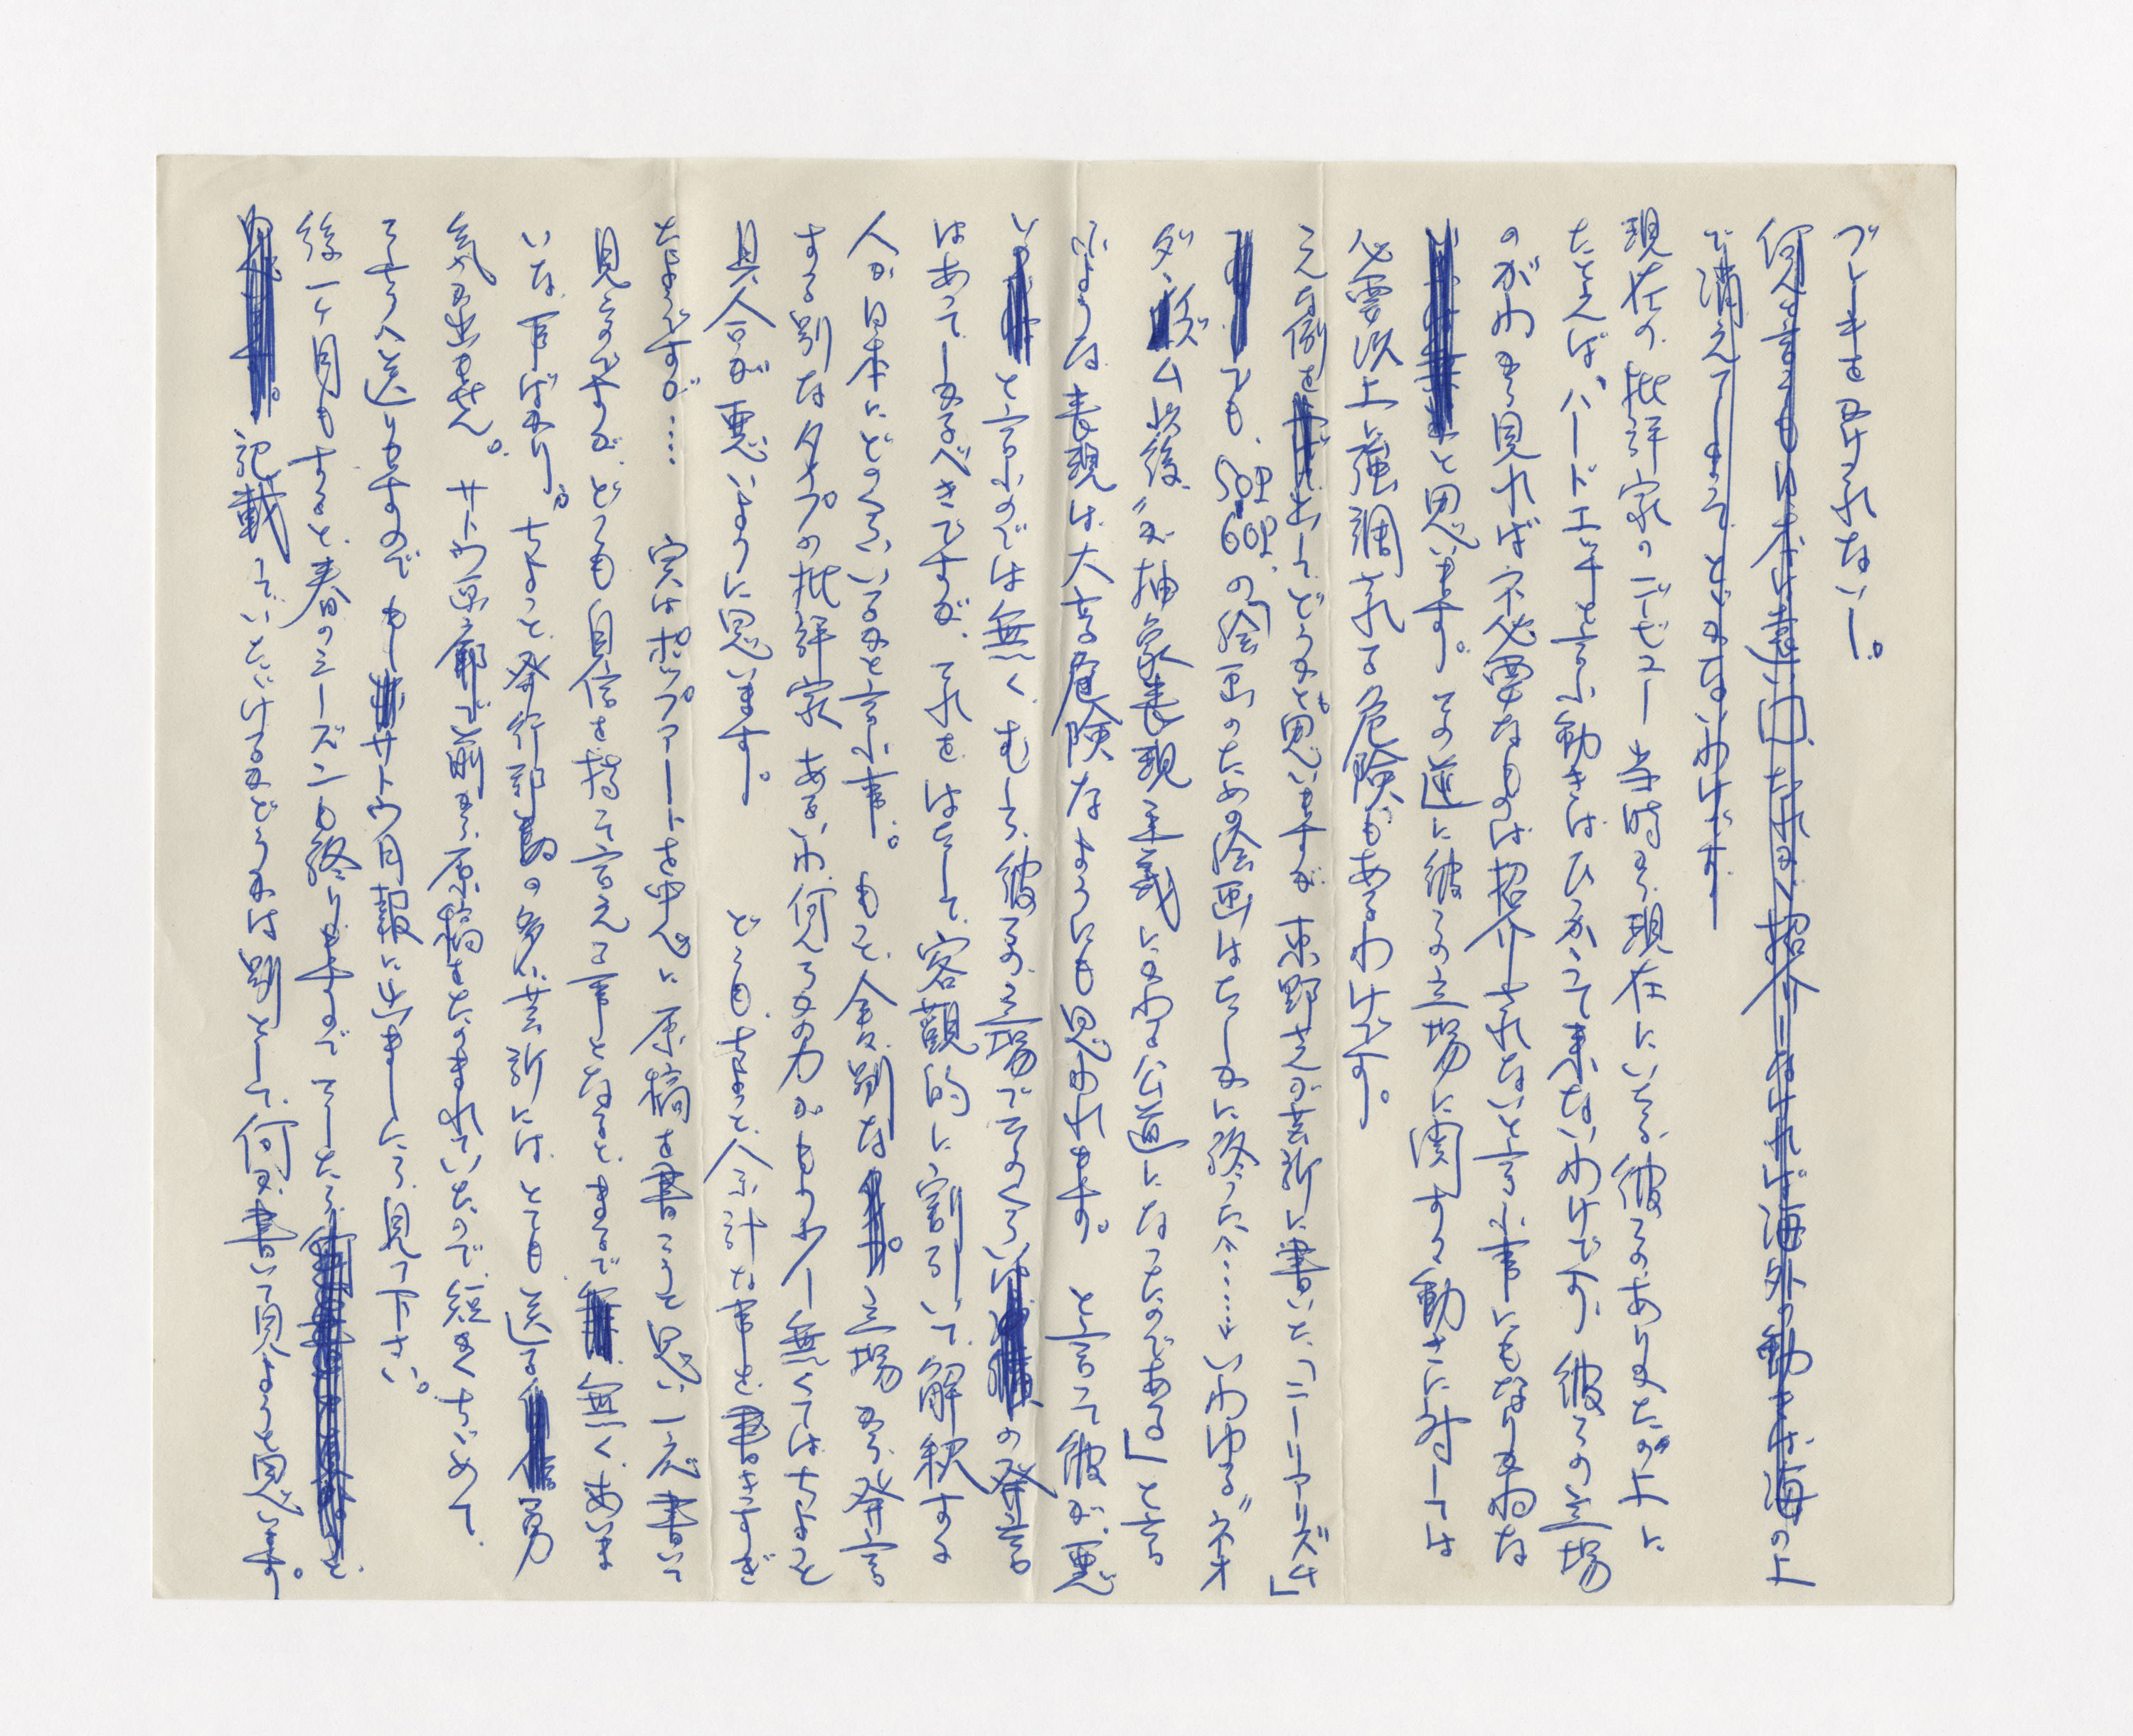 ブレーキをかけれない―。
何んと言っても日本は狭い口だれかが紹介しなければ海外の動きは海の上
で消えてしまってどかないわけです―
現在の批評家のデビュー当時から現在にいたる、彼らのありかたが上に
たとえば、ハードエッヂと言ふ動きはひっかゝって来ないわけです、彼らの立場
のがわから見れば不必要なものは招介されないと言ふ事にもなりかねな
と思います。その逆に彼らの立場に関する動きに対しては
必要以上に強調される危険があるわけです。
こんな例を出してどうかと思いますが東野さんが芸術に書いた「ニューリアリズム」
でも、50型60型の絵画のための絵画はたしかに終った〃……〃いわゆる〃ネオ
ダダイズム以後〃が抽象表現主義にかわる公道になったのである「と言う
ような表現は大変危険なようにも思われます。と言って彼が悪
いと言ふのでは無く、むしろ彼らの立場でそのくらいの発言
はあってしかるべきですが、それをはたして、客観的に割引いて解釈する
人が日本にどのくらいいるかと言ふ事。もっと全々別な立場から発言
する別なタイプの批評家あるいわ何んらかの力がもう少し無くてはちょっと
具合が悪いように思います。どうも、ちょっと余計な事を書きすぎ
たようですが……実はポップアートを中心に原稿を書こうと思い一応書いて
見たのですが、どうも自信を持って言える事となるとまるで無く、あいま
いな事ばかり。ちょっと発行部数の多い芸術にはとても送る勇
気が出ません。サトウ画廊で前から原稿をたのまれていたので短かくちゞめて、
そちらへ送りますのでもしサトウ月報に出ましたら見て下さい。
後一ヶ月もすると春のシーズンも終りますのでそしたら
記載していたゞけるかどうかは別として、何か書いて見ようと思います。